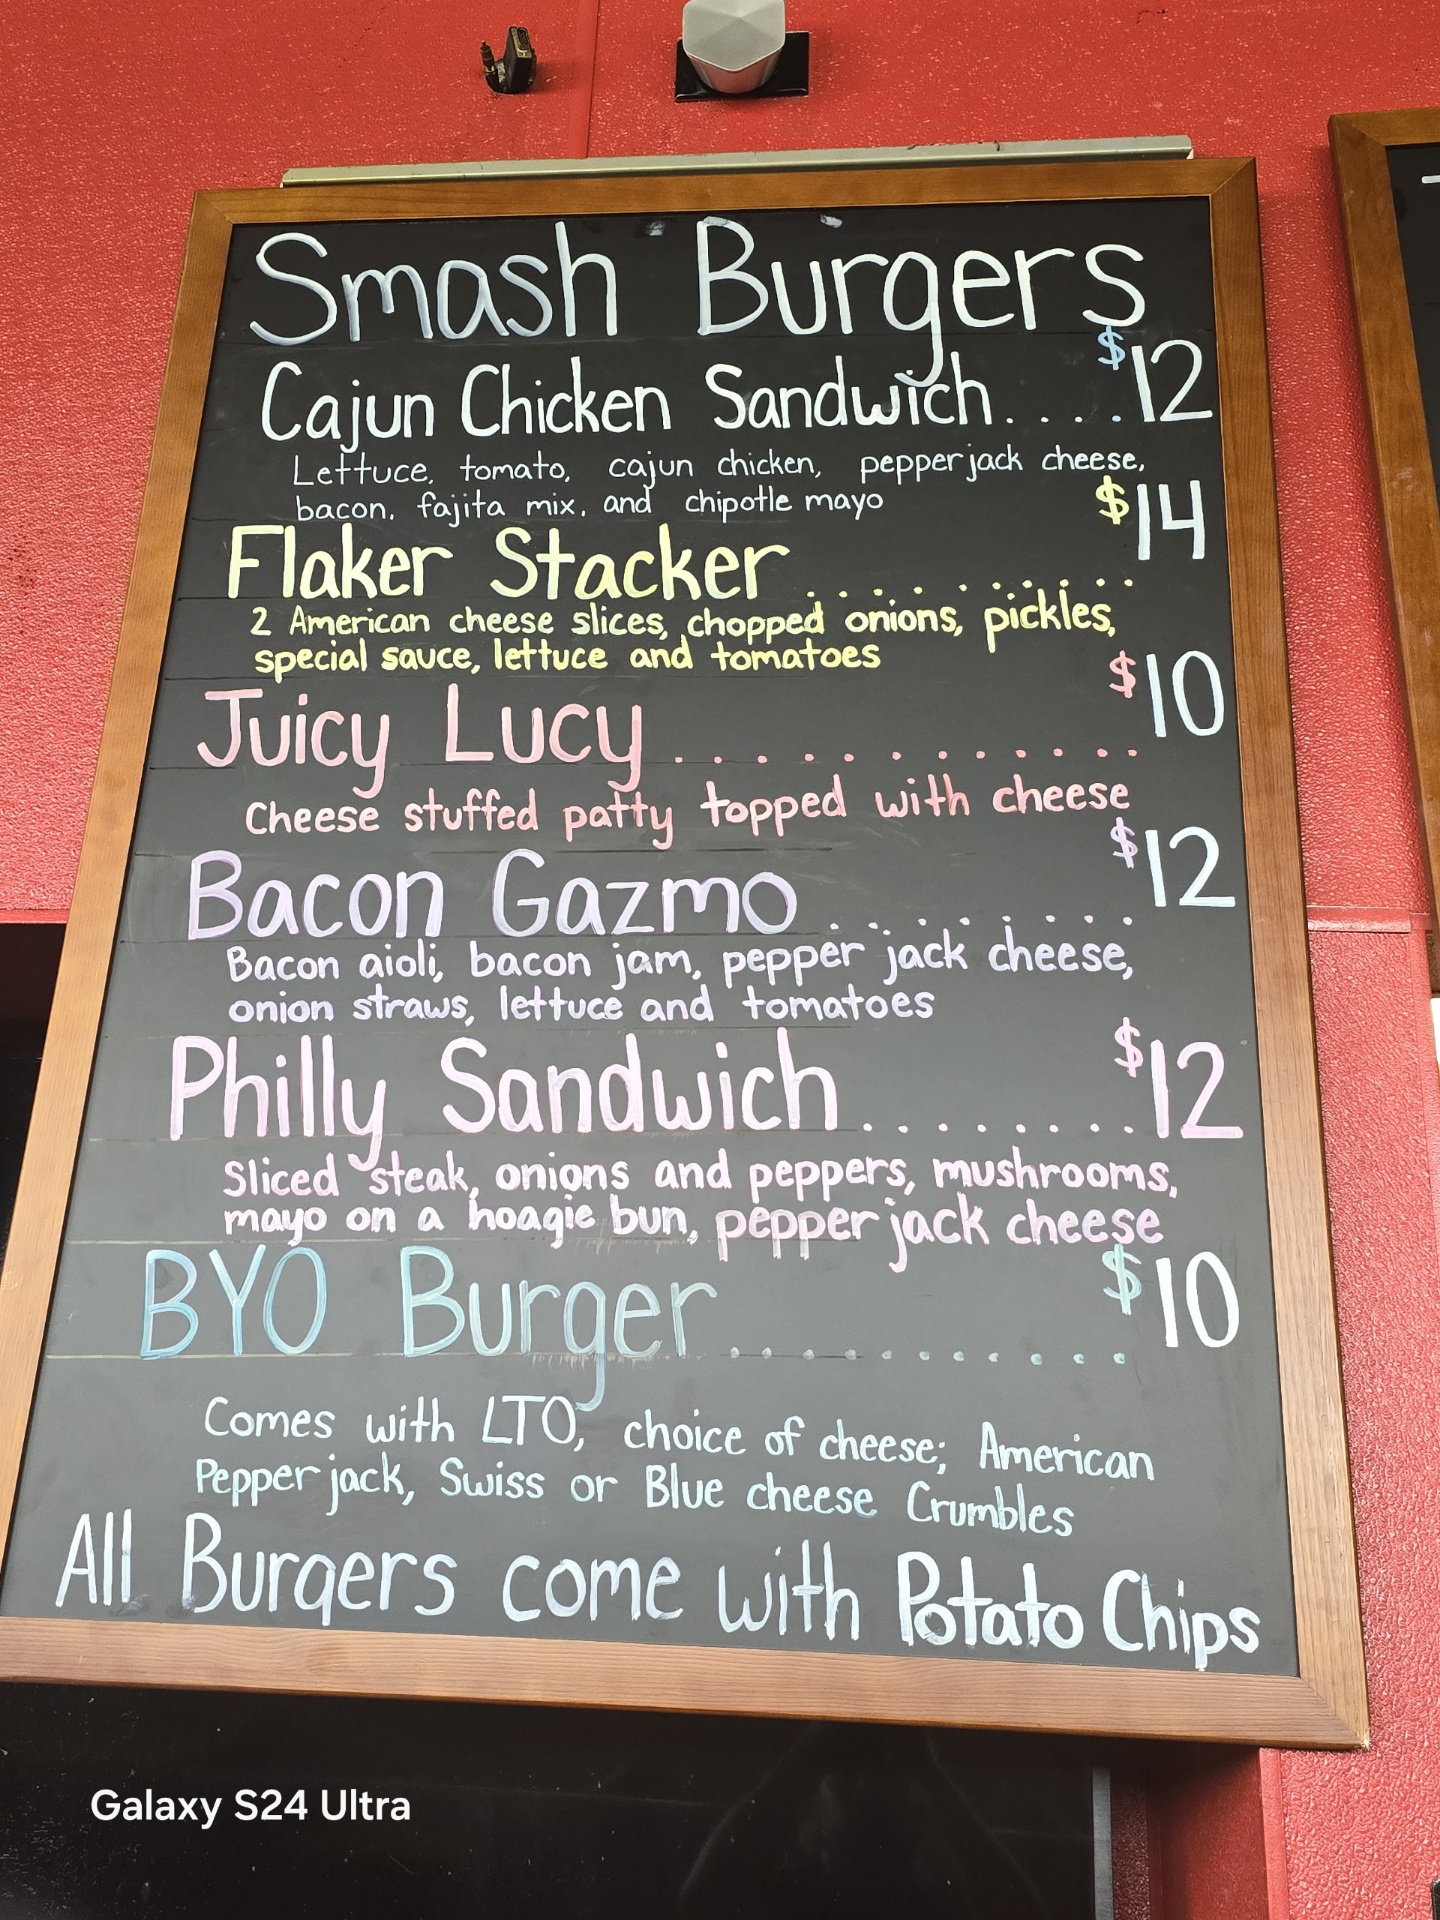 Smash Burgers
Cajun Chicken Sandwich.... $12
Lettuce, tomato, cajun chicken, pepperjack cheese,
bacon, fajita mix, and chipotle mayo
Flaker Stacker .......... $14
2 American cheese slices, chopped onions, pickles,
special sauce, lettuce and tomatoes
Juicy Lucy ........... $10
Cheese stuffed patty topped with cheese
Bacon Gazmo ........ $12
Bacon aioli, bacon jam, pepper jack cheese,
onion straws, lettuce and tomatoes
Philly Sandwich........ $12
Sliced steak, onions and peppers, mushrooms,
mayo on a hoagie bun, pepper jack cheese
BYO Burger ........... $10
Comes with LTO, choice of cheese; American
Pepper jack, Swiss or Blue cheese Crumbles
All Burgers come with Potato Chips
Galaxy S24 Ultra